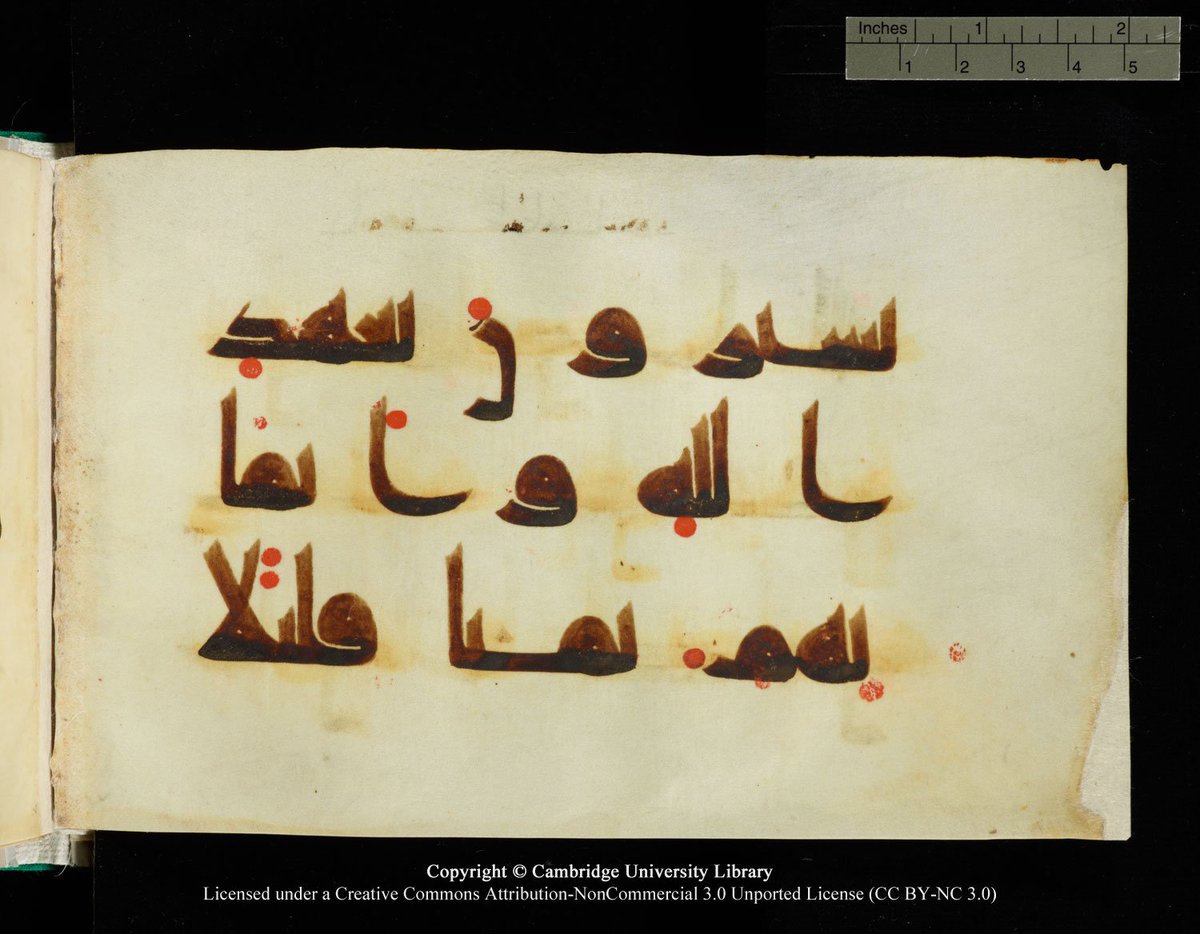 Inches 1 2
1 2 3 4 5
يشترون بعهد
الله وايما
نهم ثمنا قليلا
Copyright © Cambridge University Library
Licensed under a Creative Commons Attribution-NonCommercial 3.0 Unported License (CC BY-NC 3.0)